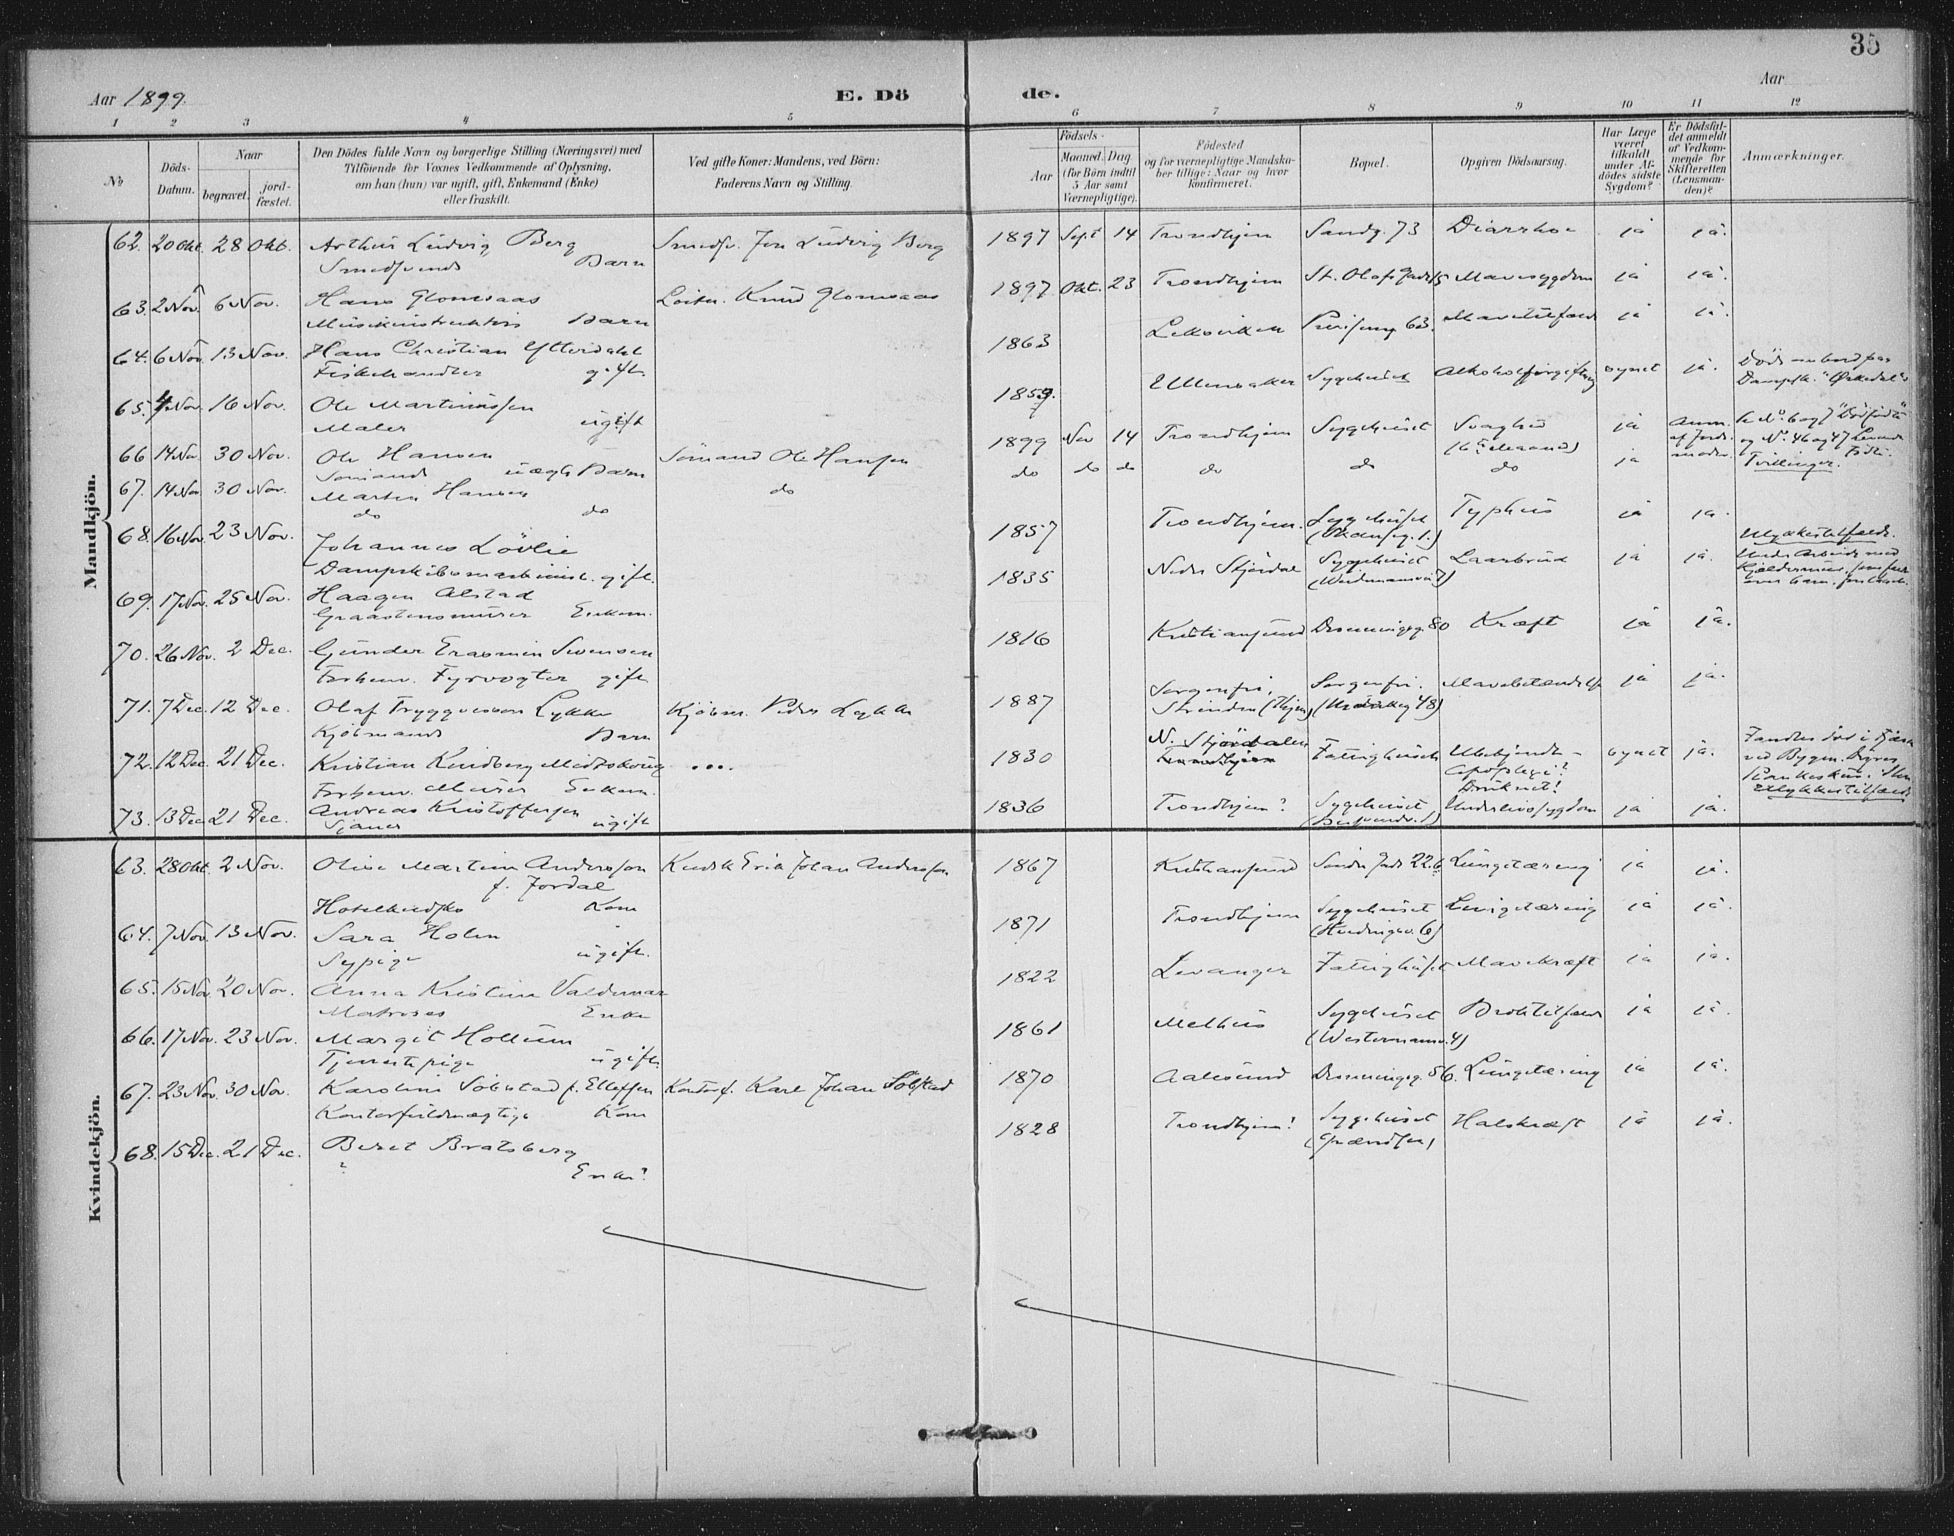 35
Aar 1899.
E. Dö
de.
Aar
1 2 3 4 5 6 7 8 9 10 11 12
No
Döds-Datum.
Naar
begravet.
jordfæstet.
Den Dödes fulde Navn og borgerlige Stilling (Næringsvei) med
Tilföiende for Voxnes Vedkommende af Oplysning,
om han (hun) var ugift, gift, Enkemand (Enke)
eller fraskilt.
Ved gifte Koner: Mandens, ved Börn:
Faderens Navn og Stilling.
Födsels-
Aar
Maaned. Dag
(for Börn indtil
5 Aar samt
Værnepligtige).
Födested
og for værnepligtige Mandskaber
tillige: Naar og hvor
konfirmeret.
Bopæl.
Opgiven Dödsaarsag.
Har Læge
været
tilkaldt
under Afdödes
sidste
Sygdom?
Er Dödsfaldet
anmeldt
af Vedkommende
for
Skifteretten
(Lensmanden)?
Anmærkninger.
Mandkjön.
62. 20 Okt. 28 Okt. Arthur Ludvig Berg Smedsv. Jon Ludvig Berg 1897 Sept 14 Trondhjem Sandg. 73 Diarrhoe ja ja.
Smedsvends Barn
63. 2 Nov. 6 Nov. Hans Glomsaas Knud Glomsaas 1897 Okt. 23 Trondhjem St. Olafs Gade 15 Mavesygdom ja ja.
Musikinstruktørs Barn
64. 6 Nov. 13 Nov. Hans Christian Ytterdahl 1863 Leksviken 63. Mavetilfælde ja ja.
Fiskehandler gift
65. 4 Nov. 16 Nov. Ole Martinussen 1859. Ullensaker Sygehuset Alkoholforgiftning synet ja. Död ombord paa
Maler ugift Dampsk. "Orkedal"
66 14 Nov. 30 Nov. Ole Hansen Sömand Ole Hansen 1899 Nov 14 Trondhjem Sygehuset Svaghed ja anm. No. 6 og 7 "Dödfödte"
Sömands uægte Barn (6te Maaned) af Jordmoder. og No. 46 og 47 Levende Födte.
67. 14 Nov. 30 Nov. Martin Hansen do do do do do do do ja Tvillinger.
do do
68. 16 Nov. 23 Nov. Johannes Lövlie 1857 Trondhjem. Sygehuset Typhus ja ja.
Dampskibsmaskinist. gift.
69. 17 Nov. 25 Nov. Haagen Alstad 1835 Nedre Stjördal Sygehuset Laarbrud ja ja. Ulykkestilfælde.
Graastensmurer Enkem. Under Arbeide med
70. 26 Nov. 2 Dec. Gunder Erasmin Svensen 1816 Kristiansund Dronningsg. 80 Kræft ja ja.
Forhenv. Fyrvogter gift
71. 7 Dec. 12 Dec. Olaf Tryggvesson Lykke Kjöbm. Peder Lykke 1887 Sorgenfri, Sorgenfri. Mavebetændelse ja ja.
Kjöbmands Barn Strinden (Thjem)
72. 12 Dec. 21 Dec. Kristian Kindberg Midtskoug .... 1830 N. Stjördalen Fattighuset Ubekjendt – synet ja. Fandtes död i
Forhenv. Murer Enkem. Trondhjem Apoplexi? ved Bygen.
Drukket! Ulykkestilfælde
73. 13 Dec. 21 Dec. Andreas Kristoffersen 1836 Trondhjem? Sygehuset Underlivssygdom ja ja.
Sjauer ugift
Kvindekjön.
63. 28 Okt. 2 Nov. Oline Martine Andersson Kudsk Erik Johan Andersson 1867 Kristiansund Söndre Gade 22. Lungetæring ja ja.
f. Jordal
Hotelkudsks Kone
64. 7 Nov. 13 Nov. Sara Holm 1871 Trondhjem Sygehuset Lungetæring ja ja.
Sypige ugift.
65. 15 Nov 20 Nov. Anna Kristine Valdemar 1822 Levanger Fattighuset Mavekræft ja ja.
Matroses Enke
66. 17 Nov. 23 Nov. Margit Hollum 1861 Melhus Sygehuset Broktilfælde ja ja.
Tjenestepige ugift. (Westermannsv. 4)
67. 23 Nov. 30 Nov. Karoline Solstad f. Ellefsen Kontorf. Karl Johan Solstad 1870 Aalesund Dronningsg. 56. Lungetæring ja ja.
Kontorfuldmægtigs Kone
68. 15 Dec. 21 Dec. Beret Bratsberg 1828 Trondhjem? Sygehuset Halskræft ja ja.
? Enke?